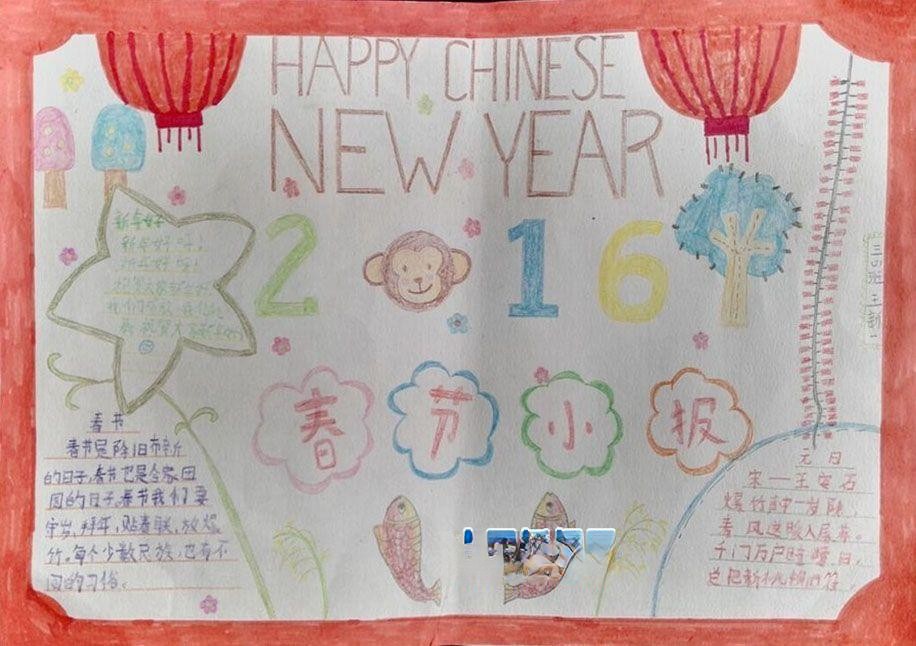 HAPPY CHINESE
NEW YEAR
新年好
新年好呀!
新年好呀!
2 16
三
班
王
春节小报
春节
春节是除旧布新
的日子,春节也是全家团
圆的日子,春节我们要
守岁,拜年,贴春联,放爆
竹。每个少数民族,也有不
同的习俗。
元日
宋一王安石
爆竹声中一岁除,
春风送暖入屠苏。
千门万户曈曈日,
总把新桃换旧符